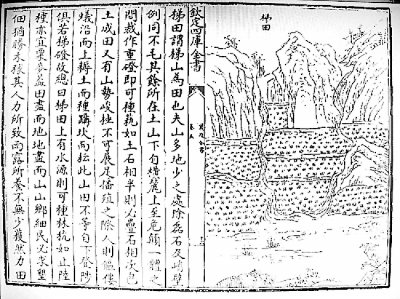 梯田
欽定四庫全書
梯田謂梯山為田也夫山多地少之處除磊石及峭壁
例同不毛其餘所在土山下自橫麓上至危巔一體之
間裁作重磴即可種蓺如土石相半則必疊石相次包
土成田又有山勢峻極不可展足播殖之際人則傴僂
蟻沿而上耨土而種躡坎而耘此山田不等自下登陟
俱若梯磴故總曰梯田上有水源則可種秔秫如止陸
種亦宜粟麥蓋田盡而地地盡而山山鄉細民必求墾
佃猶勝不稼其人力所致雨露所養不無少穫然力田